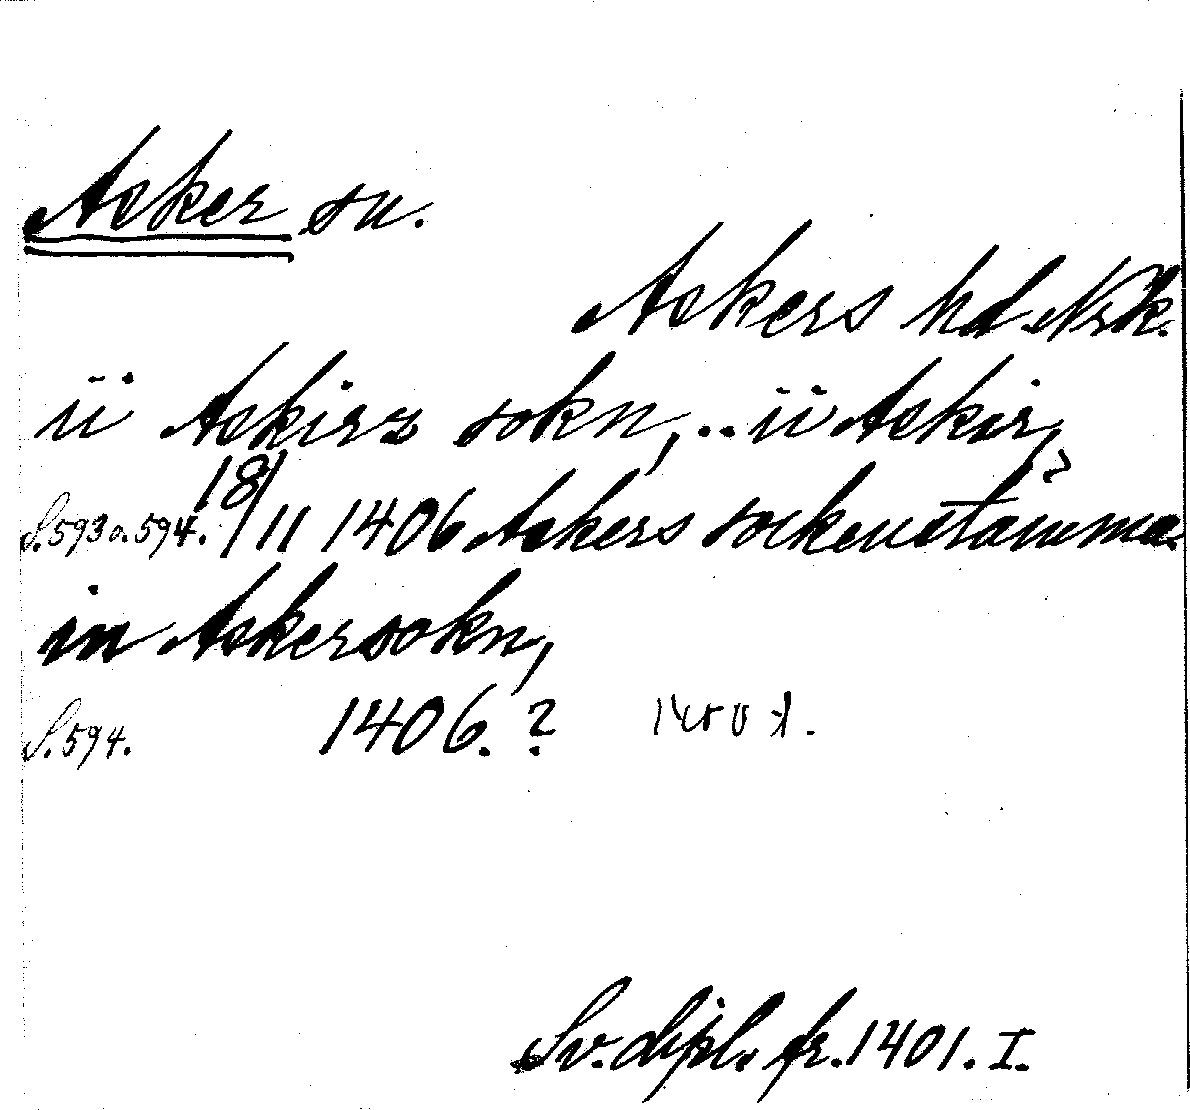 Asker sn.
Askers hd. Nrk.
ii Askirz sokn, .. ii Askir,
S. 593 o. 594. 18/11 1406 Askers sockenstämma.
in Askersokn,
S. 594. 1406. ?
Sv. dipl. fr. 1401. I.